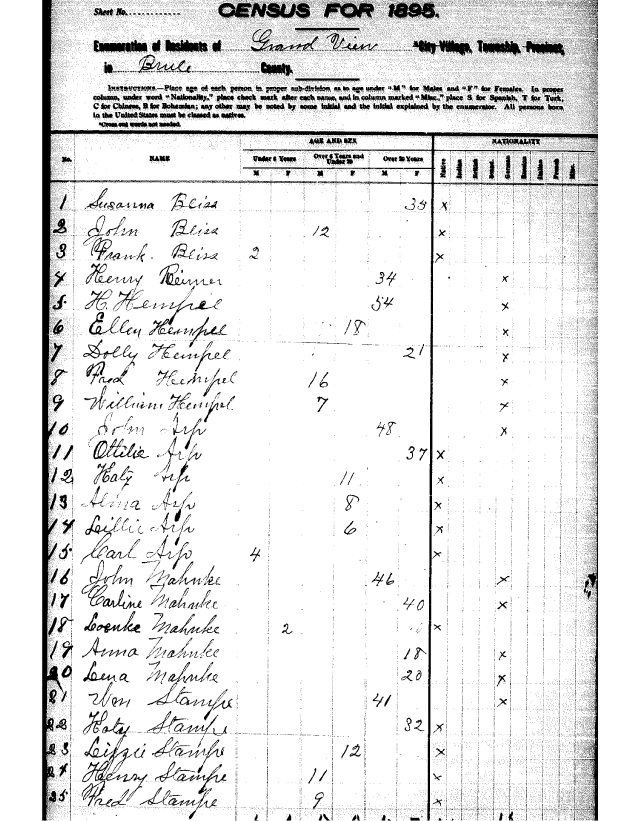 Sheet No.
CENSUS FOR 1895.
Enumeration of Residents of Grand View *City Village, Township, Precinct,
in Brule County.
INSTRUCTIONS.—Place age of each person in proper sub-division as to age under "M" for Males and "F" for Females. In proper
column, under word "Nationality," place check mark after each name, and in column marked "Misc." place S for Spanish, T for Turk,
C for Chinese, B for Bohemian; any other may be noted by some initial and the initial explained by the enumerator. All persons born
in the United States must be classed as natives.
*Cross out words not needed.
AGE AND SEX NATIONALITY
No. NAME Under 6 Years Over 6 Years and Under 20 Over 20 Years Native
M F M F M F
1 Susanna Bliss 35 x
2 John Bliss 12 x
3 Frank Bliss 2 x
4 Henry Reimer 34 x
5 H. Hempel 54 x
6 Ellen Hempel 18 x
7 Dolly Hempel 21 x
8 Fred Hempel 16 x
9 William Hempel 7 x
10 John Arp 48 x
11 Ottilie Arp 37 x
12 Katy Arp 11 x
13 Alma Arp 8 x
14 Lillie Arp 6 x
15 Carl Arp 4 x
16 John Mahnke 46 x
17 Carline Mahnke 40 x
18 Mahnke 2 x
19 Anna Mahnke 18 x
20 Lena Mahnke 20 x
21 Wm Stampe 41 x
22 Katy Stampe 32 x
23 Lizzie Stampe 12 x
24 Henry Stampe 11 x
25 Fred Stampe 9 x